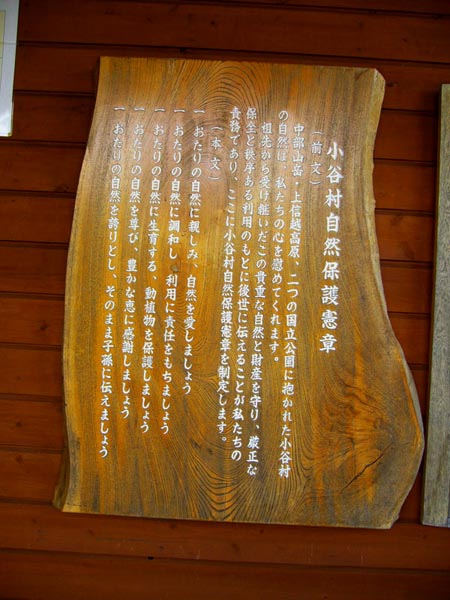 小谷村自然保護憲章
（前文）
中部山岳・上信越高原、二つの国立公園に抱かれた小谷村
の自然は、私たちの心を慰めてくれます。
祖先から受け継いだこの貴重な自然と財産を守り、厳正な
保全と秩序ある利用のもとに後世に伝えることが私たちの
責務であり、ここに小谷村自然保護憲章を制定します。
（本文）
一 おたりの自然に親しみ、自然を愛しましょう
一 おたりの自然に調和し、利用に責任をもちましょう
一 おたりの自然に生育する、動植物を保護しましょう
一 おたりの自然を尊び、豊かな恵に感謝しましょう
一 おたりの自然を誇りとし、そのまま子孫に伝えましょう